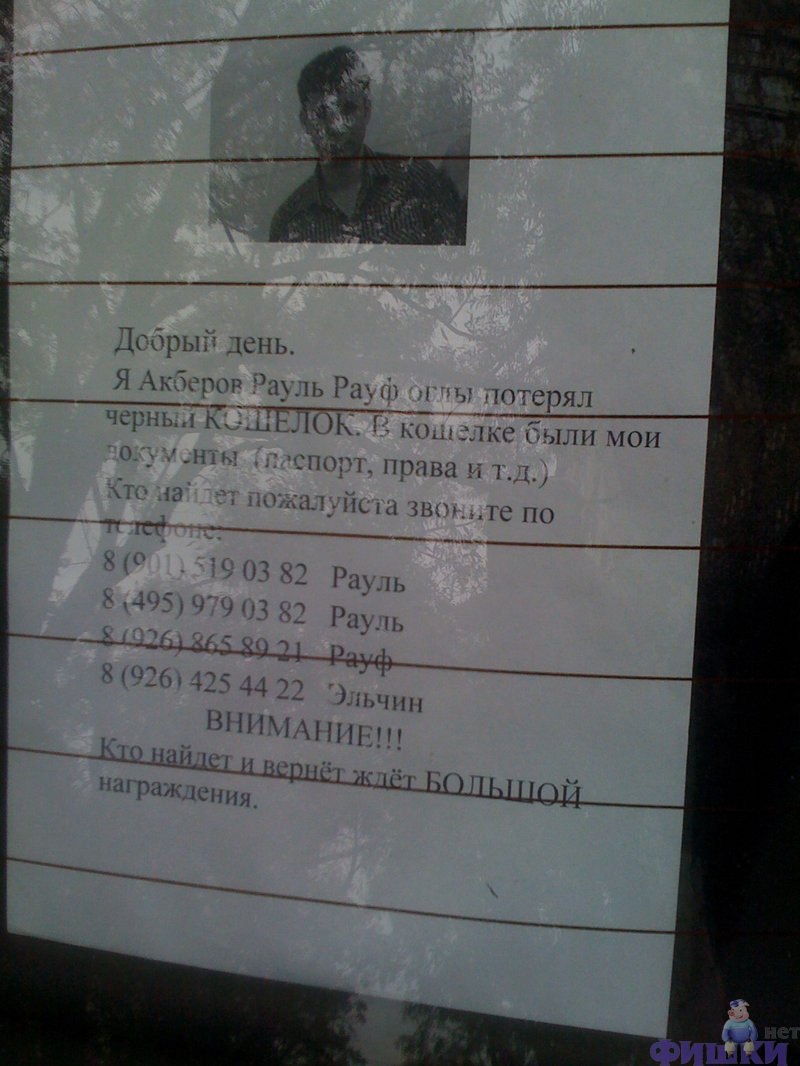 Добрый день.
Я Акберов Рауль Рауф оглы потерял
черный КОШЕЛОК. В кошелке были мои
документы (паспорт, права и т.д.)
Кто найдет пожалуйста звоните по
телефоне:
8 (901) 519 03 82 Рауль
8 (495) 979 03 82 Рауль
8 (926) 865 89 21 Рауф
8 (926) 425 44 22 Эльчин
ВНИМАНИЕ!!!
Кто найдет и вернёт ждёт БОЛЬШОЙ
награждения.
Фишки
нет